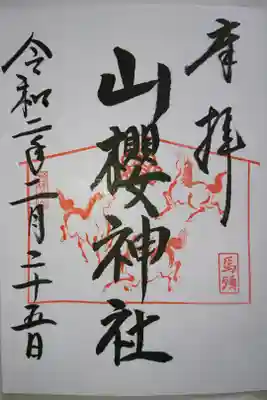 奉拝
山櫻神社
令和二年二月二十五日
馬頭